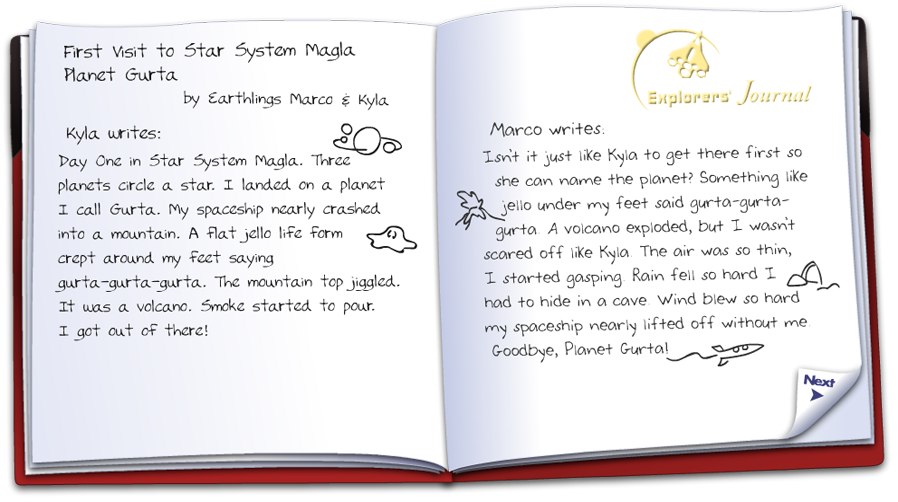 First Visit to Star System Magla
Planet Gurta
by Earthlings Marco & Kyla
Kyla writes:
Day One in Star System Magla. Three
planets circle a star. I landed on a planet
I call Gurta. My spaceship nearly crashed
into a mountain. A flat jello life form
crept around my feet saying
gurta-gurta-gurta. The mountain top jiggled.
It was a volcano. Smoke started to pour.
I got out of there!
Explorers' Journal
Marco writes:
Isn't it just like Kyla to get there first so
she can name the planet? Something like
jello under my feet said gurta-gurta-
gurta. A volcano exploded, but I wasn't
scared off like Kyla. The air was so thin,
I started gasping. Rain fell so hard I
had to hide in a cave. Wind blew so hard
my spaceship nearly lifted off without me.
Goodbye, Planet Gurta!
Next